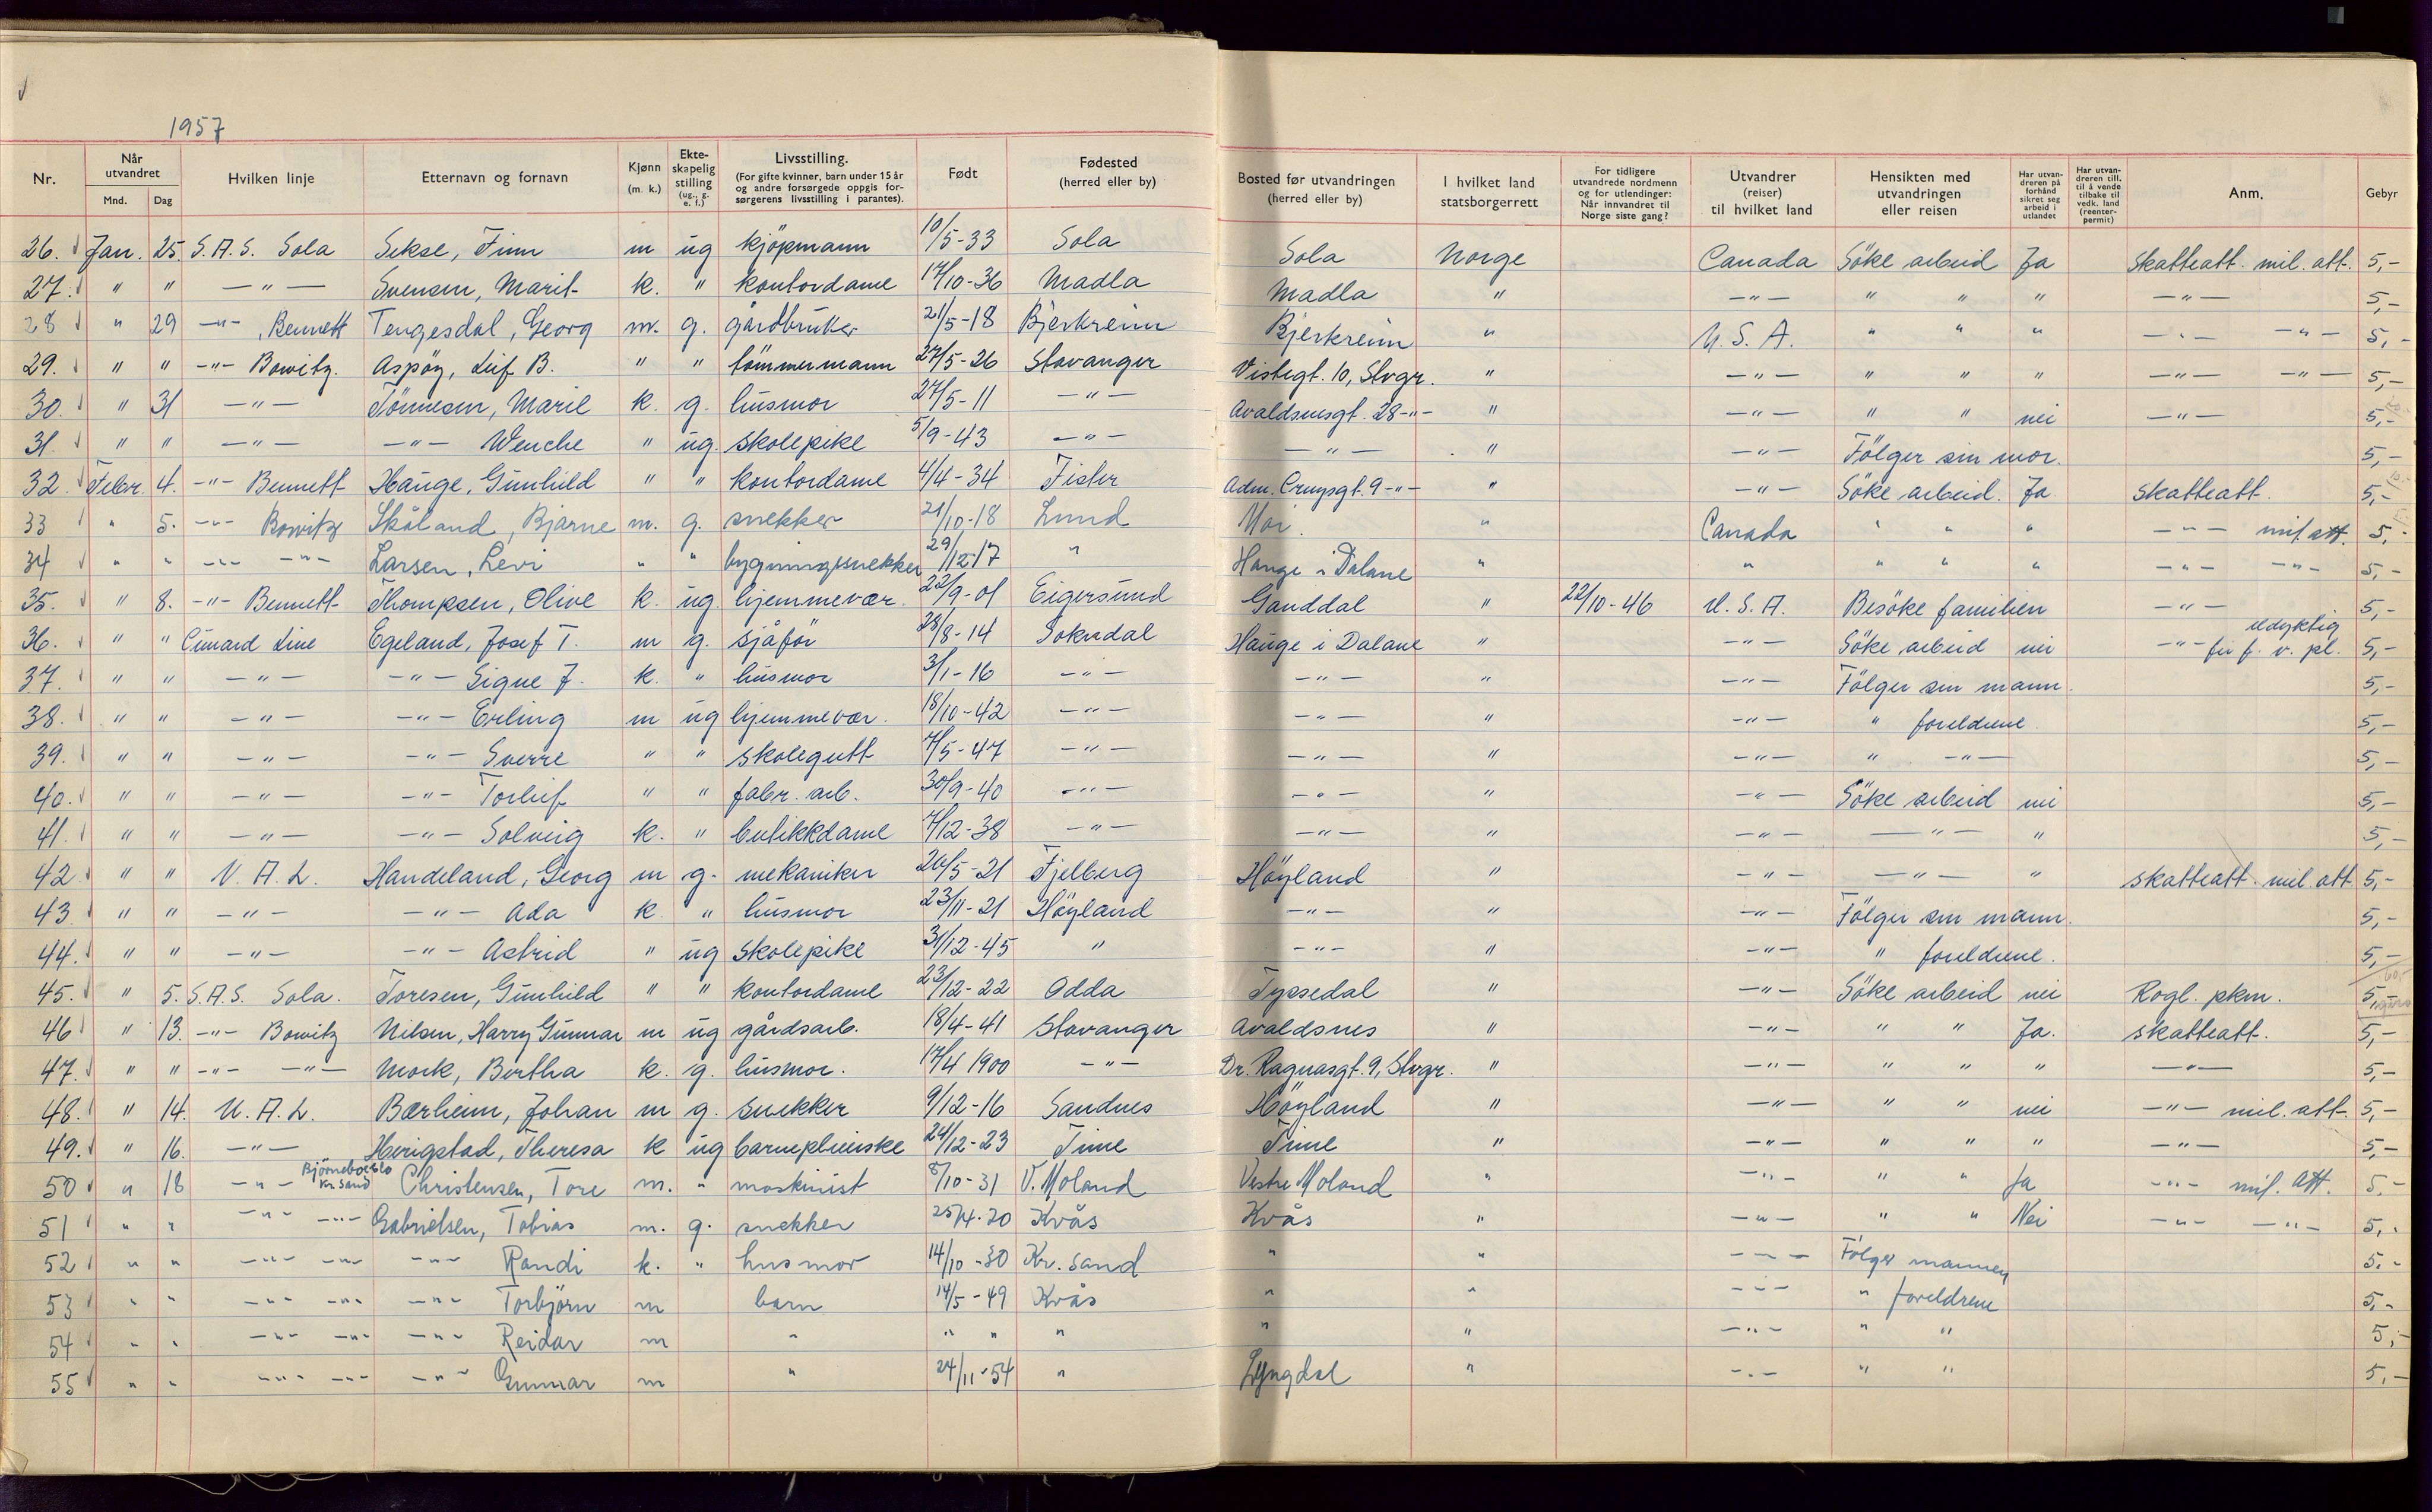 1957
Nr. Når utvandret Mnd. Dag Hvilken linje Etternavn og fornavn Kjønn (m. k.) Ekteskapelig stilling (ug., g. e. f.) Livsstilling. (For gifte kvinner, barn under 15 år og andre forsørgede oppgis forsørgerens livsstilling i parantes). Født Fødested (herred eller by) Bosted før utvandringen (herred eller by) I hvilket land statsborgerrett For tidligere utvandrede nordmenn og for utlendinger: Når innvandret til Norge siste gang? Utvandrer (reiser) til hvilket land Hensikten med utvandringen eller reisen Har utvandreren på forhånd sikret seg arbeid i utlandet Har utvandreren till. til å vende tilbake til vedk. land (reenterpermit) Anm. Gebyr
26. Jan. 25. S.A.S. Sola Sekse, Finn m ug kjöpmann 10/5-33 Sola Sola Norge Canada Söke arbeid Ja Skatteatt. mil. att. 5,-
27. " " -"- Svensen, Marit k. " kontordame 17/10-36 Madla Madla " -"- " " " -"- 5,-
28 " 29 -"- Bennett Tengesdal, Georg m. g. gårdbruker 21/5-18 Bjerkreim Bjerkreim " U.S.A. " " " -"- -"- 5,-
29. " " -"- Bowitz. Aspöy, Leif B. " " tömmermann 27/5-26 Stavanger Vistegt. 10, Stvgr. " -"- " " " -"- -"- 5,-
30. " 31 -"- Tönnesen, Marie k. g. husmor 27/5-11 -"- Avaldsnesgt. 28 -"- " -"- " " nei -"- 5,-
31. " " -"- -"- Wenche " ug. skolepike 5/9-43 -"- -"- " -"- Fölger sin mor. 5,-
32. Febr. 4. -"- Bennett Hauge, Gunhild " " kontordame 4/4-34 Fister Adm. Cruysgt. 9 -"- " -"- Söke arbeid. Ja skatteatt. 5,-
33 " 5. -"- Bowitz Skåland, Bjarne m. g. snekker 21/10-18 Lund Moi " Canada " " " -"- mil. att. 5,-
34 " " -"- -"- Larsen, Levi " " bygningssnekker 29/12-17 " Hauge i Dalane " " " " " -"- -"- 5,-
35. " 8. -"- Bennett Thompsen, Olive k. ug. hjemmevær. 22/9-01 Eigersund Ganddal " 22/10-46 U.S.A. Besöke familien -"- 5,-
36. " " Cunard Line Egeland, Josef T. m g. sjåför 28/8-14 Sokndal Hauge i Dalane " -"- Söke arbeid nei -"- udyktig for f. v. pl. 5,-
37. " " -"- -"- Signe J. k. " husmor 3/1-16 -"- -"- " -"- Fölger sin mann. 5,-
38. " " -"- -"- Erling m ug hjemmevær. 18/10-42 -"- -"- " -"- " foreldrene 5,-
39. " " -"- -"- Sverre " " skolegutt 7/5-47 -"- -"- " -"- " -"- 5,-
40. " " -"- -"- Torleif " " fabr. arb. 30/9-40 -"- -"- " -"- Söke arbeid nei 5,-
41. " " -"- -"- Solveig k. " butikkdame 7/12-38 -"- -"- " -"- -"- " 5,-
42. " " N.A.L. Handeland, Georg m g. mekaniker 20/5-21 Fjelberg Höyland " -"- -"- " skatteatt. mil. att 5,-
43. " " -"- -"- Ada k " husmor 23/11-21 Höyland -"- " -"- Fölger sin mann. 5,-
44. " " -"- -"- Astrid " ug skolepike 31/12-45 " -"- " -"- " foreldrene. 5,-
45. " 5. S.A.S. Sola. Toresen, Gunhild " " kontordame 23/12-22 Odda Tyssedal " -"- Söke arbeid nei Rogl. pkm. 5,-
46 " 13. -"- Bowitz Nilsen, Harry Gunnar m ug gårdsarb. 18/4-41 Stavanger Avaldsnes " -"- " " Ja. skatteatt. 5,-
47. " " -"- -"- Mork, Bertha k. g. husmor. 17/4 1900 -"- Dr. Ragnasgt. 9, Stvgr. " -"- " " " -"- 5,-
48. " 14. N.A.L. Bærheim, Johan m g. snekker 9/12-16 Sandnes Höyland " -"- " " nei -"- mil. att. 5,-
49. " 16. -"- Herigstad, Theresa k ug barnepleierske 24/12-23 Time Time " -"- " " " -"- 5,-
50 " 18 -"- Björneboe & Co Kr. Sand Christensen, Tore m. " maskinist 8/10-31 V. Moland Vestre Moland " -"- " " Ja -"- mil. att. 5,-
51 " " -"- -"- Gabrielsen, Tobias m. g. snekker 25/4-20 Kvås Kvås " -"- " " Nei -"- -"- 5,-
52 " " -"- -"- -"- Randi k. " husmor 14/10-30 Kr. Sand " " -"- Fölger mannen 5.-
53 " " -"- -"- -"- Torbjörn m barn 14/5-49 Kvås " " -"- " foreldrene 5,-
54 " " -"- -"- -"- Reidar m " " " " " " -"- " " 5,-
55 " " -"- -"- -"- Gunnar m " 24/11-54 " Lyngdal " -"- " " 5,-